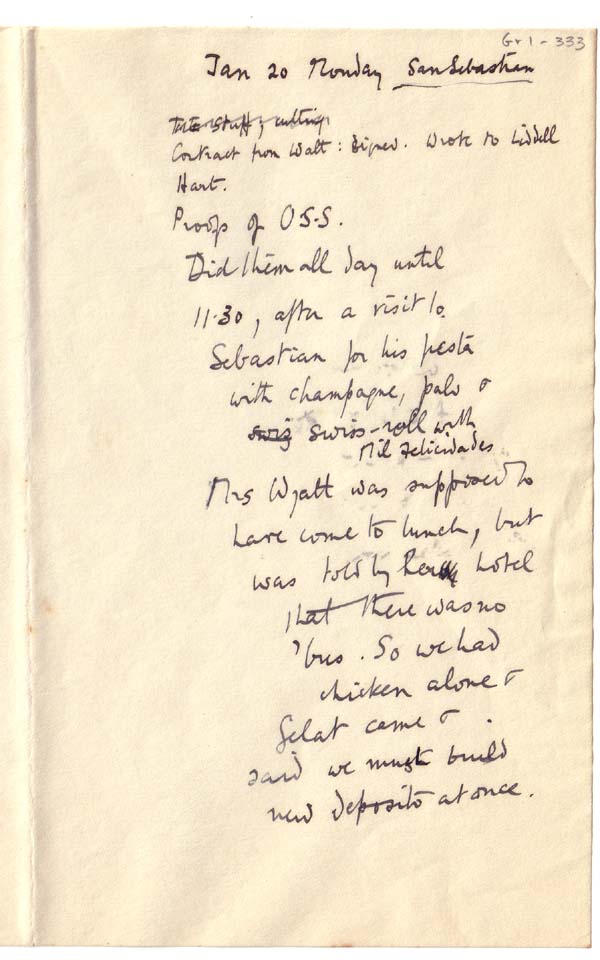 Gr1 - 333
Jan 20 Monday San Sebastian
Contract from Watt: Signed. Wrote to Liddell
Hart.
Proofs of O.S.S.
Did them all day until
11.30, after a visit to
Sebastian for his festa
with champagne, palo &
swiz swiss-roll with
Mil Felicidades
Mrs Wyatt was supposed to
have come to lunch, but
was told by her hotel
that there was no
'bus. So we had
chicken alone &
Gelat came &
said we must build
new deposito at once.